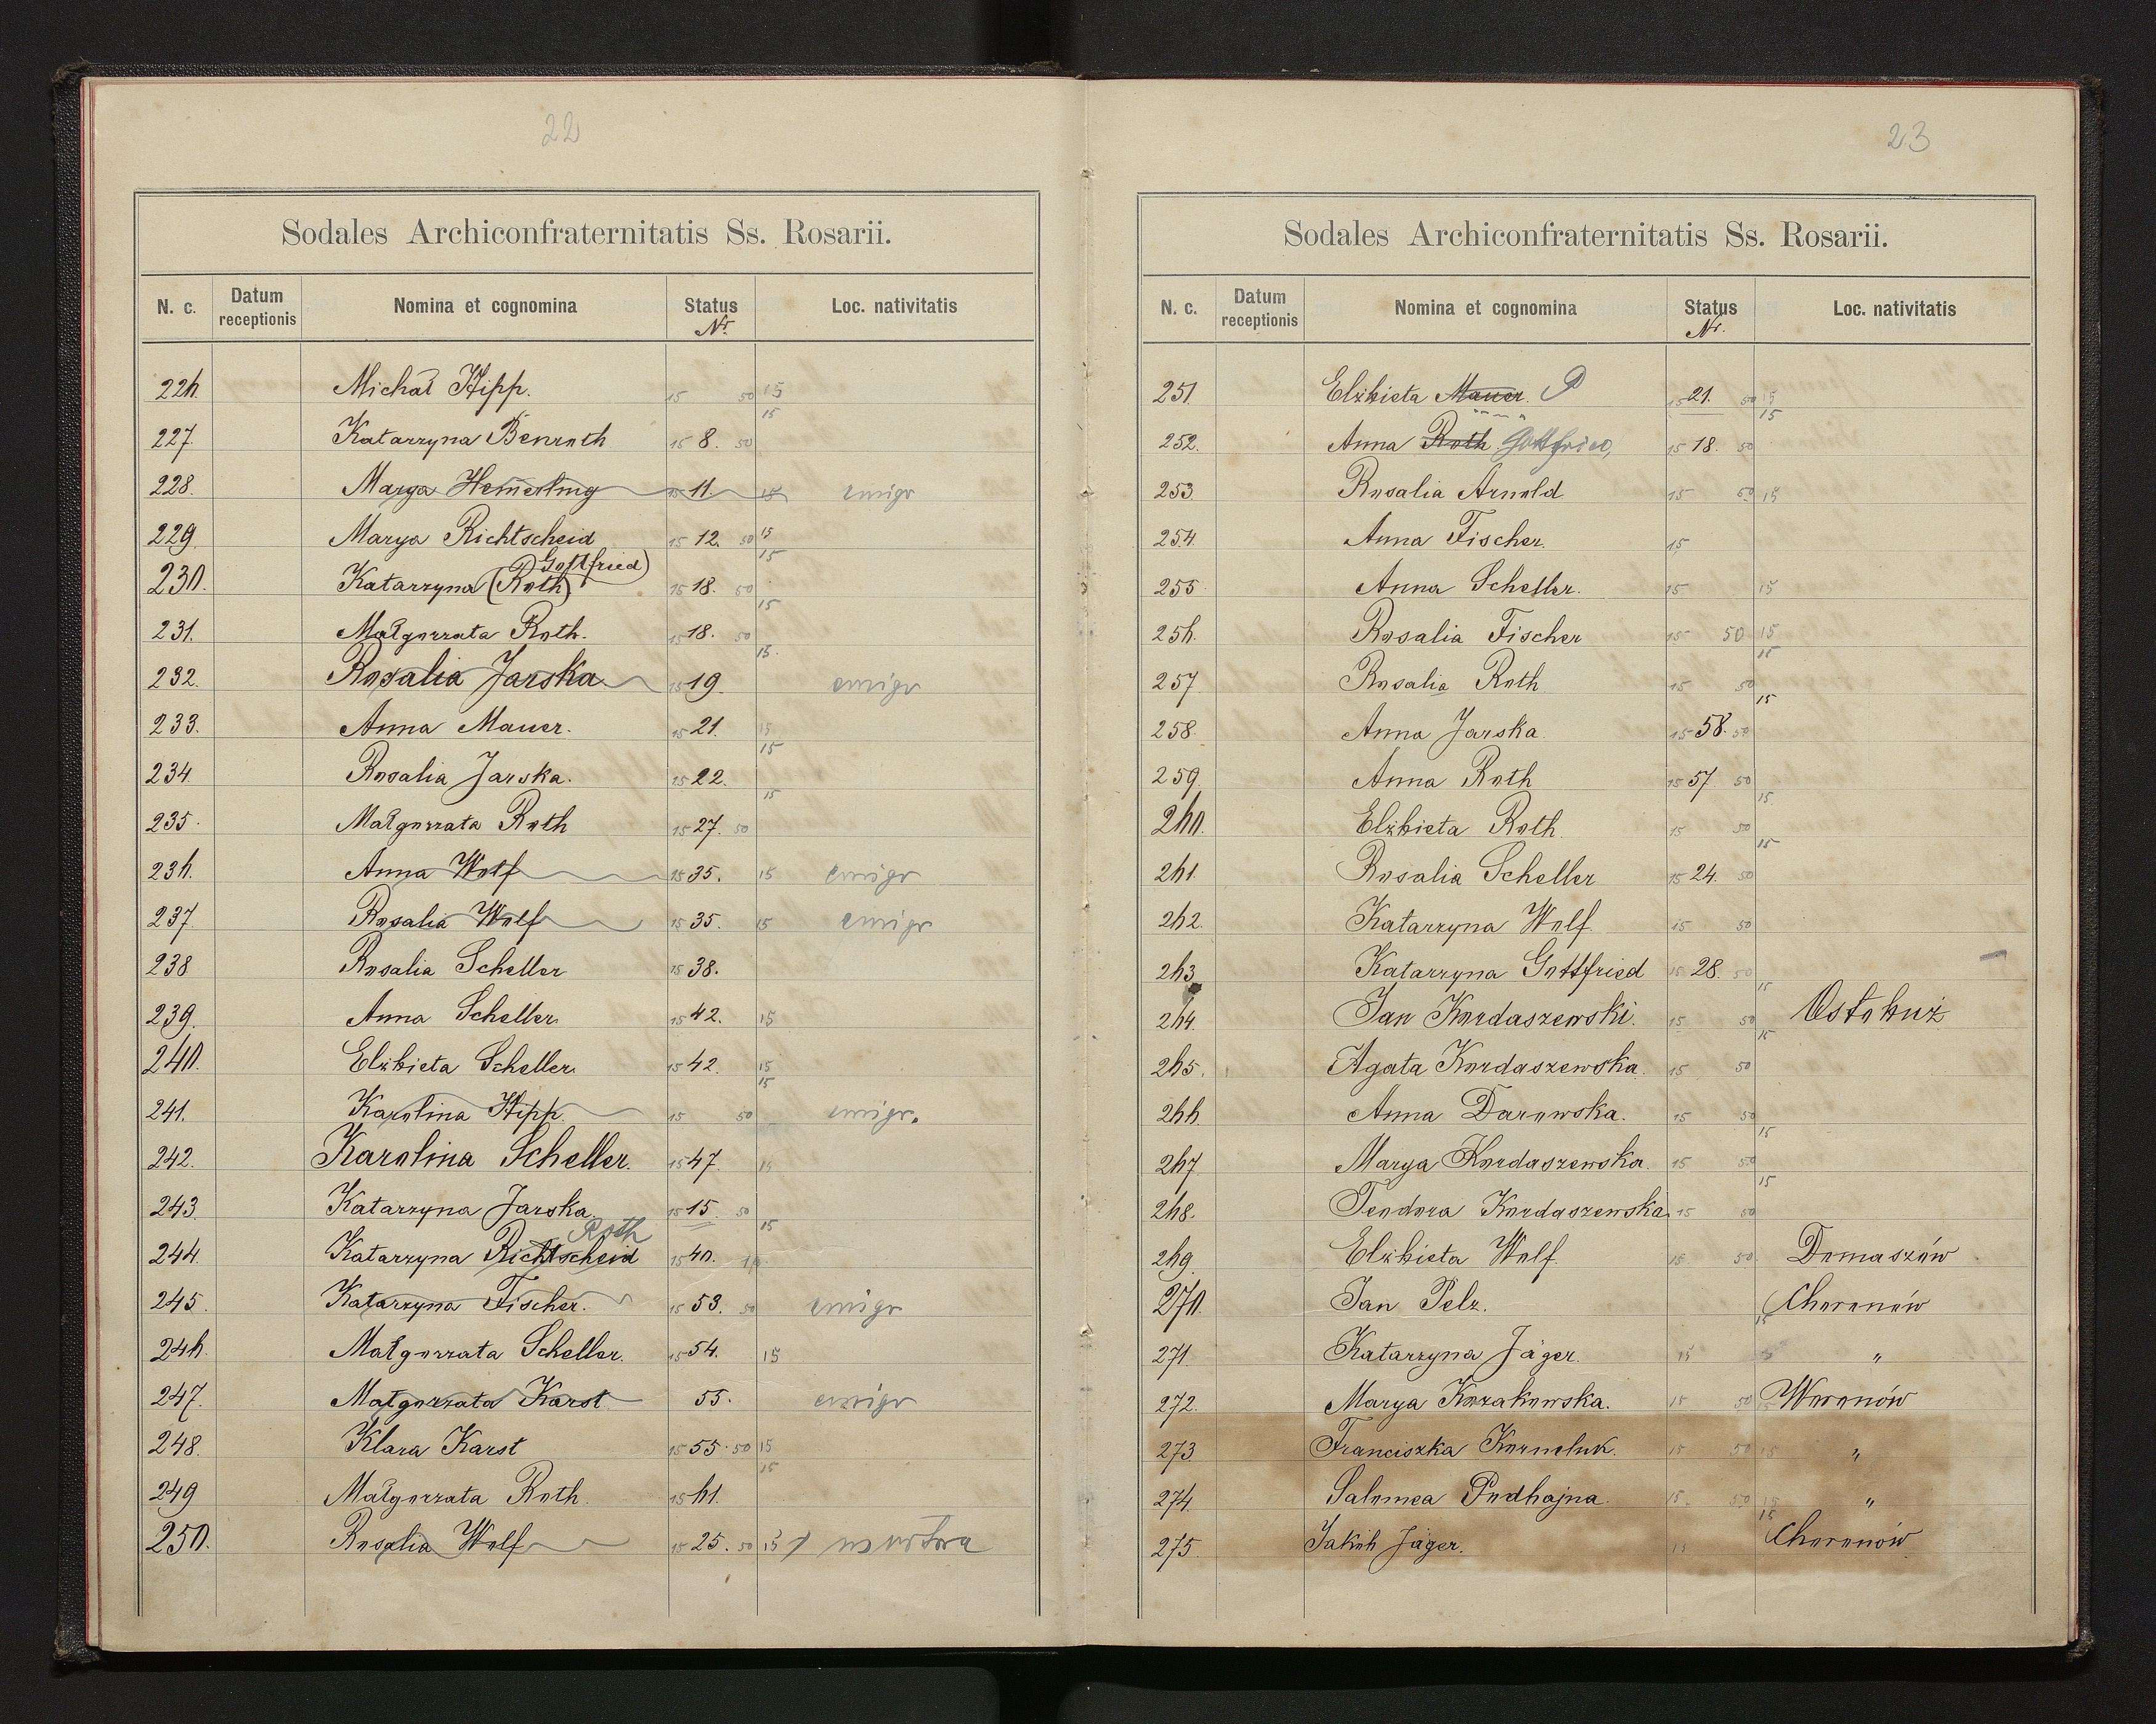 22
Sodales Archiconfraternitatis Ss. Rosarii.
N. c. Datum receptionis Nomina et cognomina Status Nr. Loc. nativitatis
226. Michał Hipp. 15 50 15
15
227. Katarzyna Benroth 15 8. 50
228. Marya Hemerling 15 11. 15 emigr
229. Marya Richtscheid 15 12. 50 15
Gottfried) 15
230. Katarzyna (Roth) 15 18. 50
15
231. Małgorzata Roth. 15 18. 50
15.
232. Rosalia Jarska 15 19. emigr
233. Anna Mauer. 15 21. 15
15
234. Rosalia Jarska. 15 22.
15
235. Małgorzata Roth 15 27. 50
236. Anna Wolf 15 35. 15 emigr
237. Rosalia Wolf 15 35. 15 emigr
238 Rosalia Scheller 15 38.
239. Anna Scheller 15 42. 15
240. Elżbieta Scheller. 15 42. 15
15
241. Karolina Hipp 15 50 emigr.
242. Karolina Scheller. 15 47 15
243. Katarzyna Jarska. 15 15. 50
Roth 15
244. Katarzyna Richtscheid 15 40.
245. Katarzyna Fischer. 15 53. 50 emigr
246. Małgorzata Scheller. 15 54. 15
247. Małgorzata Karst 55. emigr
248. Klara Karst 15 55. 50 15
15
249 Małgorzata Roth. 15 61.
250. Rosalia Wolf 15 25. 50 15 umarła
23
Sodales Archiconfraternitatis Ss. Rosarii.
N. c. Datum receptionis Nomina et cognomina Status Nr. Loc. nativitatis
251. Elżbieta Mauer. 15 21. 50 15
15
252. Anna Roth Gottfried, 15 18. 50
253. Rosalia Arnold 15 50 15
254. Anna Fischer. 15
255. Anna Scheller. 15 15
256. Rosalia Fischer 15 50 15
15
257 Rosalia Roth 15 50
15
258. Anna Jarska. 15 58. 50
259. Anna Roth 15 57 50
15
260. Elżbieta Roth. 15 50
15
261. Rosalia Scheller 15 24. 50
262. Katarzyna Wolf 15 50
263. Katarzyna Gottfried 15 28. 50
15
264. Jan Kordaszewski. 15 50 Ostobuż
15
265. Agata Kordaszewska. 15 50
266. Anna Darowska. 15 50
15
267. Marya Kordaszewska. 15 50
15
268. Teodora Kordaszewska 15 50
269. Elżbieta Wolf. 15 50. Domaszów
270. Jan Pelz. Choronów
15
271. Katarzyna Jäger. 15 "
272. Marya Kozakowska. 15 50 15 Woronów
273. Franciszka Korneluk. 15 50 15 "
274. Salomea Podhajna. 15. 50 15 "
15
275. Jakób Jäger. 15 Choronów